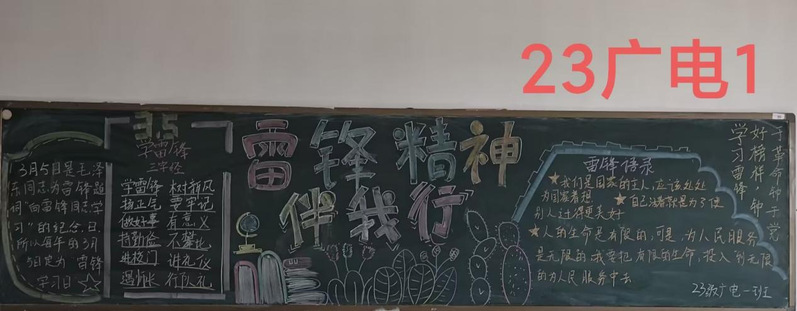 23广电1
3月5日是毛泽
东同志为雷锋题
词"向雷锋同志学
习"的纪念日,
所以每年的3月
5日定为雷锋
学习日
3.5
学雷锋
三字经
学雷锋 树新风
扬正气 要牢记
做好事 有意义
持勤俭 不攀比
进校门 讲礼仪
遇师长 行队礼
雷锋精神
伴我行
雷锋语录
★我们是国家的主人,应该处处
为国家着想 ★自己活着就是为了使
别人过得更美好
★人的生命是有限的,可是,为人民服务
是无限的,我要把有限的生命,投入到无限
的为人民服务中去
于革命,忠于党
好榜样,忠
学习雷锋,
23级广电一班